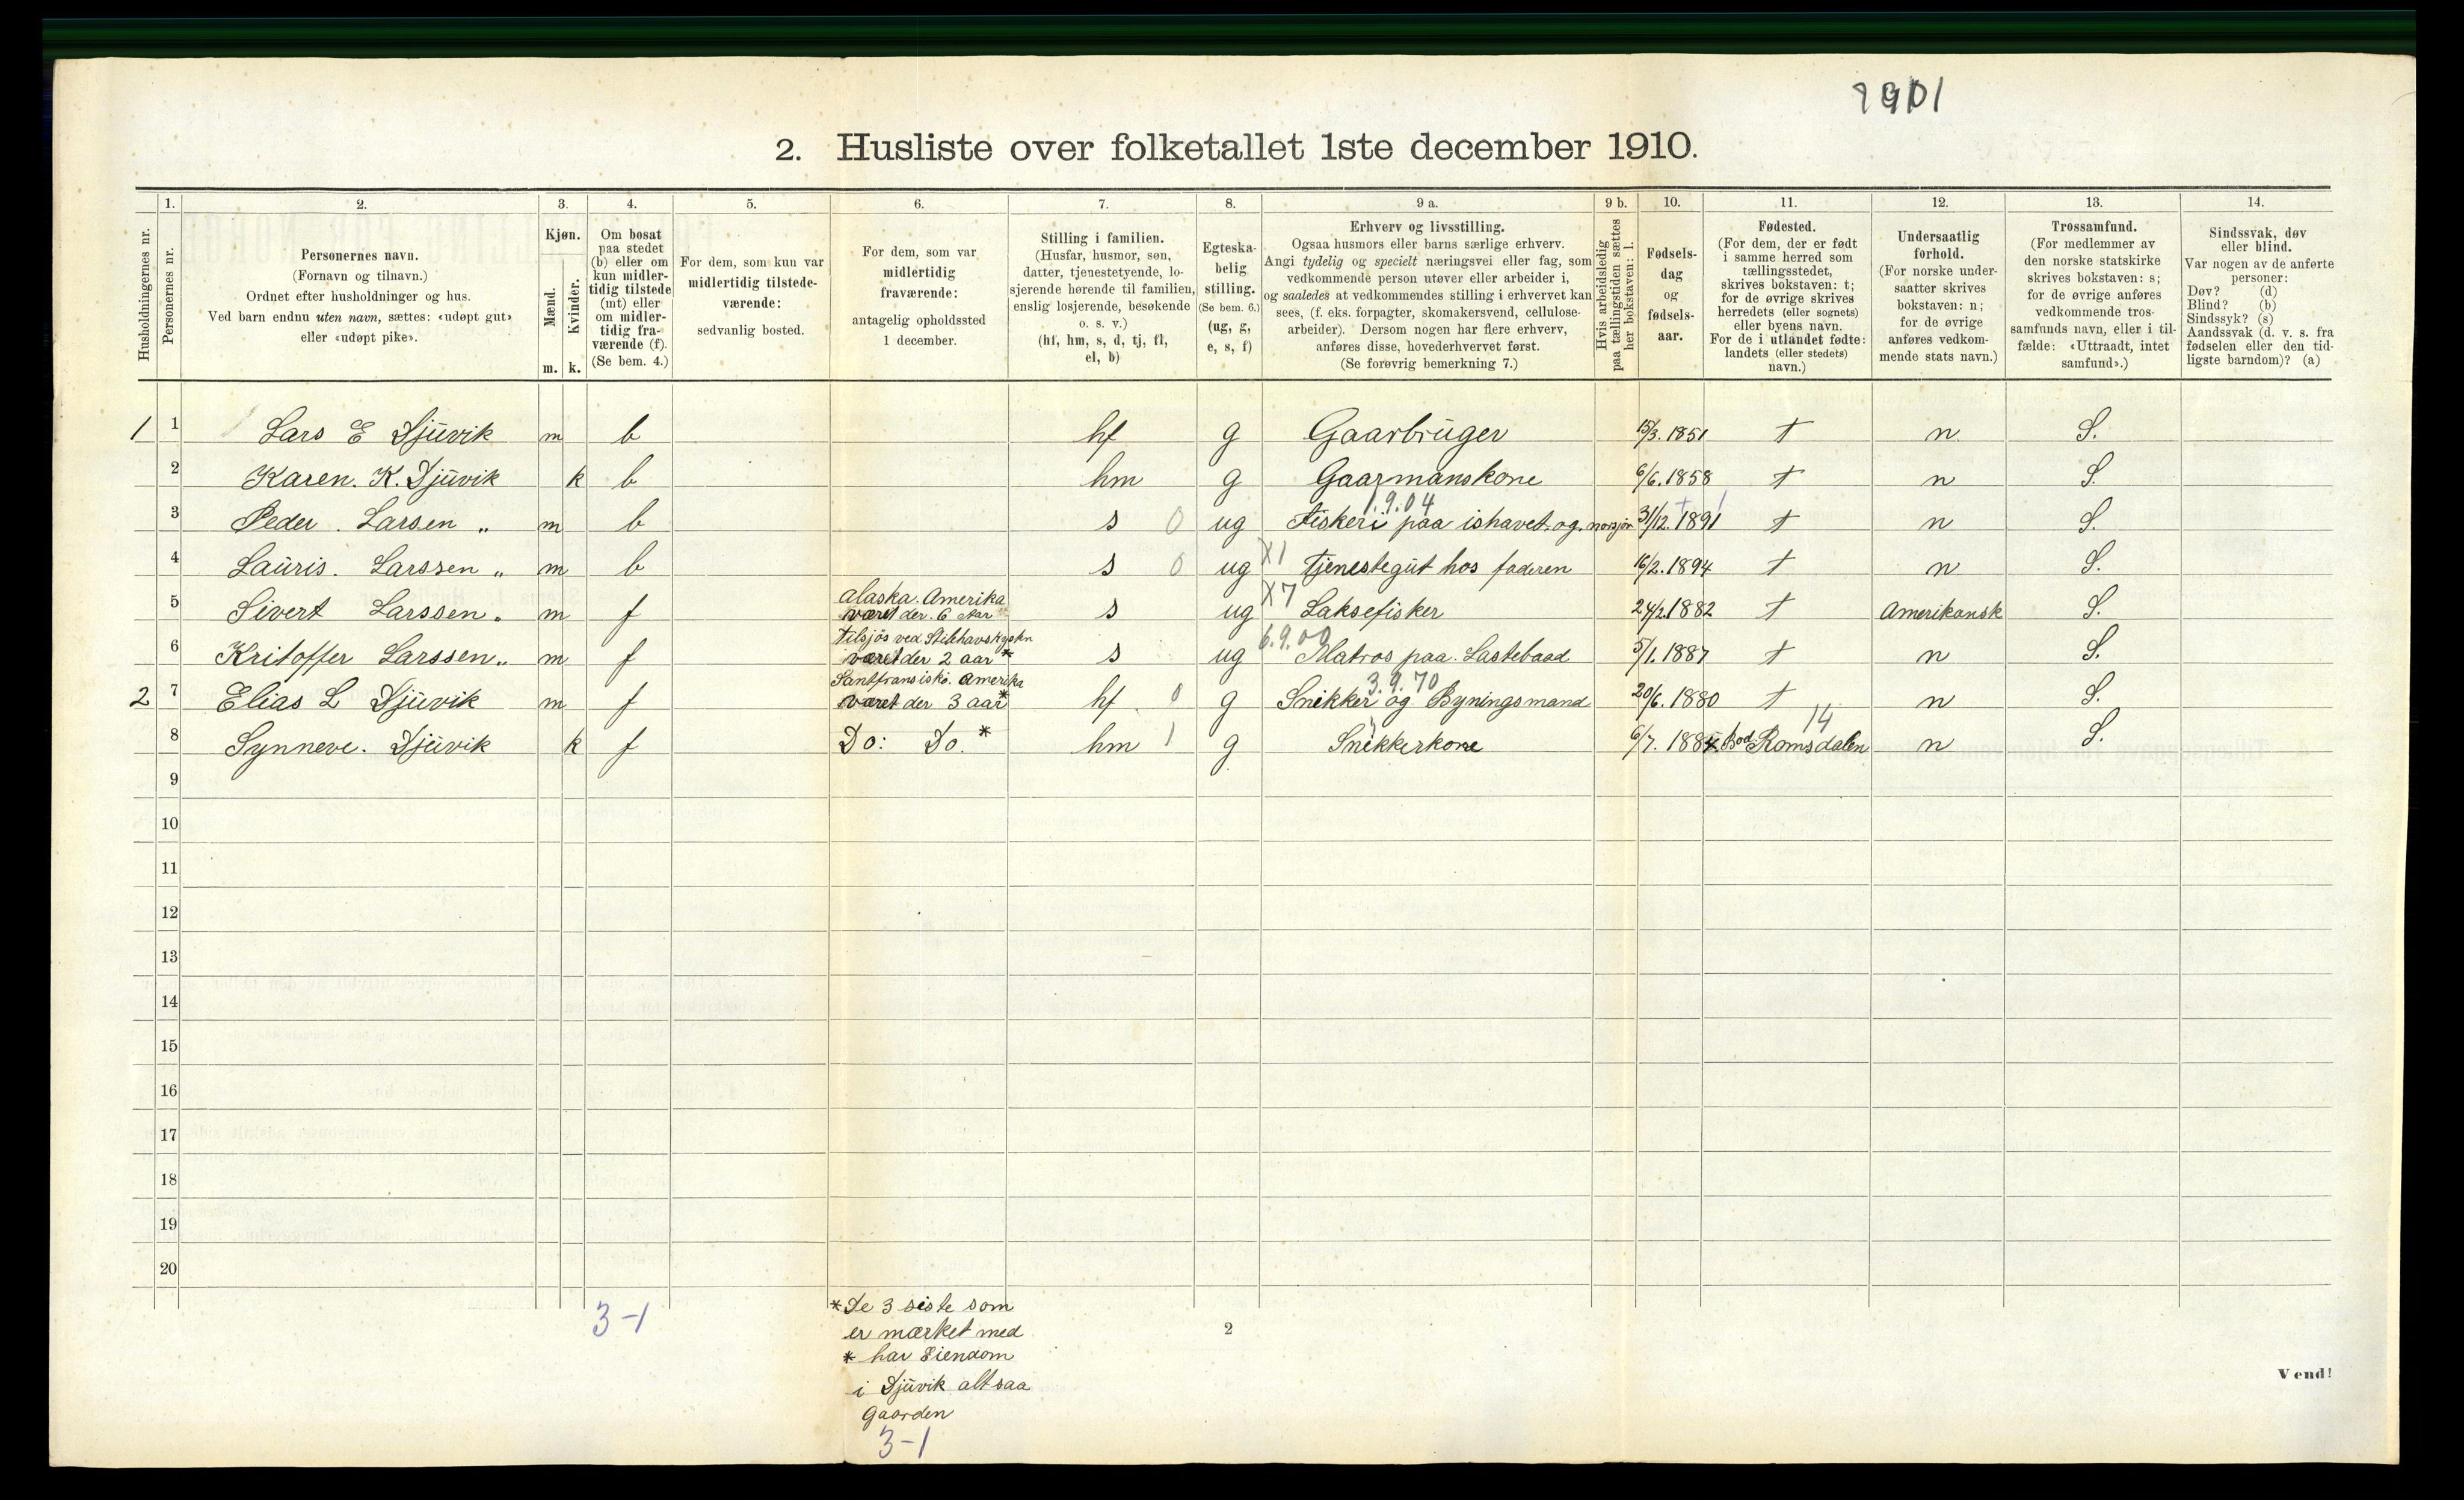 1901
2. Husliste over folketallet 1ste december 1910.
Husholdningernes nr.
1.
Personernes nr.
2.
Personernes navn.
(Fornavn og tilnavn.)
Ordnet efter husholdninger og hus.
Ved barn endnu uten navn, sættes: «udøpt gut»
eller «udøpt pike».
3.
Kjøn.
Mænd.
Kvinder.
m. k.
4.
Om bosat
paa stedet
(b) eller om
kun midler-
tidig tilstede
(mt) eller
om midler-
tidig fra-
værende (f).
(Se bem. 4.)
5.
For dem, som kun var
midlertidig tilstede-
værende:
sedvanlig bosted.
6.
For dem, som var
midlertidig
fraværende:
antagelig opholdssted
1 december.
7.
Stilling i familien.
(Husfar, husmor, søn,
datter, tjenestetyende, lo-
sjerende hørende til familien,
enslig losjerende, besøkende
o. s. v.)
(hf, hm, s, d, tj, fl,
el, b)
8.
Egteska-
belig
stilling.
(Se bem. 6.)
(ug, g,
e, s, f)
9 a.
Erhverv og livsstilling.
Ogsaa husmors eller barns særlige erhverv.
Angi tydelig og specielt næringsvei eller fag, som
vedkommende person utøver eller arbeider i,
og saaledes at vedkommendes stilling i erhvervet kan
sees, (f. eks. forpagter, skomakersvend, cellulose-
arbeider). Dersom nogen har flere erhverv,
anføres disse, hovederhvervet først.
(Se forøvrig bemerkning 7.)
9 b.
Hvis arbeidsledig
paa tællingstiden sættes
her bokstaven: l.
10.
Fødsels-
dag
og
fødsels-
aar.
11.
Fødested.
(For dem, der er født
i samme herred som
tællingsstedet,
skrives bokstaven: t;
for de øvrige skrives
herredets (eller sognets)
eller byens navn.
For de i utlandet fødte:
landets (eller stedets)
navn.)
12.
Undersaatlig
forhold.
(For norske under-
saatter skrives
bokstaven: n;
for de øvrige
anføres vedkom-
mende stats navn.)
13.
Trossamfund.
(For medlemmer av
den norske statskirke
skrives bokstaven: s;
for de øvrige anføres
vedkommende tros-
samfunds navn, eller i til-
fælde: «Uttraadt, intet
samfund».)
14.
Sindssvak, døv
eller blind.
Var nogen av de anførte
personer:
Døv? (d)
Blind? (b)
Sindssyk? (s)
Aandssvak (d. v. s. fra
fødselen eller den tid-
ligste barndom)? (a)
1 1 Lars E Djuvik m b hf g Gaarbruger 15/3. 1851 t n S.
2 Karen. K. Djuvik k b hm g Gaarmanskone 6/6. 1858 t n S.
1.9.04
3 Peder. Larsen „ m b s 0 ug Fiskeri paa ishavet. og. norsjön 31/12. 1891 t n S.
4 Lauris. Larssen „ m b s 0 ug X1 Tjenestegut hos faderen 16/2. 1894 t n S.
alaska. Amerika
5 Sivert Larssen „ m f været der. 6 Aar s ug X7 Laksefisker 24/2. 1882 t Amerikansk S.
Tilsjøs ved Stilehavskysten 6.9.00
6 Kritoffer Larssen „ m f været der 2 aar * s ug Matros paa. Lastebaad 5/1. 1887 t n S.
Santfransisko. Amerika 3.9.70
2 7 Elias L Djuvik m f været der 3 aar * hf 0 g Snikker og Byningsmand 20/6. 1880 t n S.
14
8 Synneve. Djuvik k f Do: Do. * hm 1 g Snikkerkone 6/7. 1884 Bod. Romsdalen n S.
9
10
11
12
13
14
15
16
17
18
19
20
3-1
* De 3 siste som
er mærket med
* har Eiendom
i Djuvik altsaa
Gaarden
3-1
2
Vend!